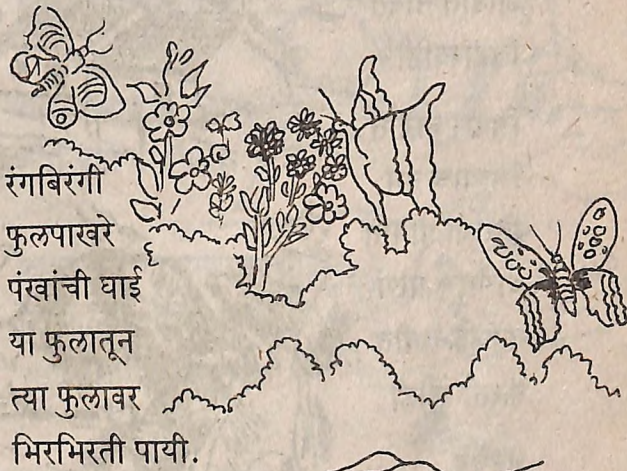 रंगबिरंगी
फुलपाखरे
पंखांची घाई
या फुलातून
त्या फुलावर
भिरभिरती पायी.